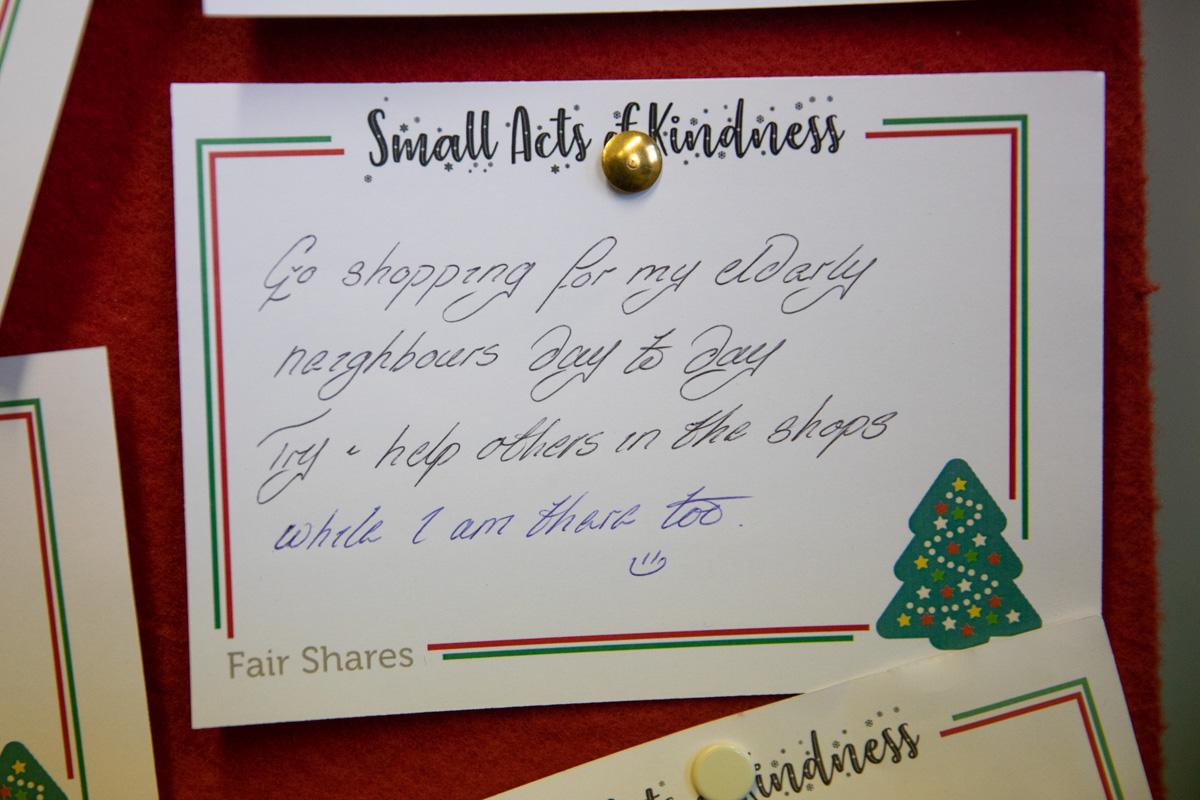 Small Acts of Kindness
Go shopping for my eldarly
neighbours day to day
Try + help others in the shops
while I am there too.
Fair Shares
Kindness